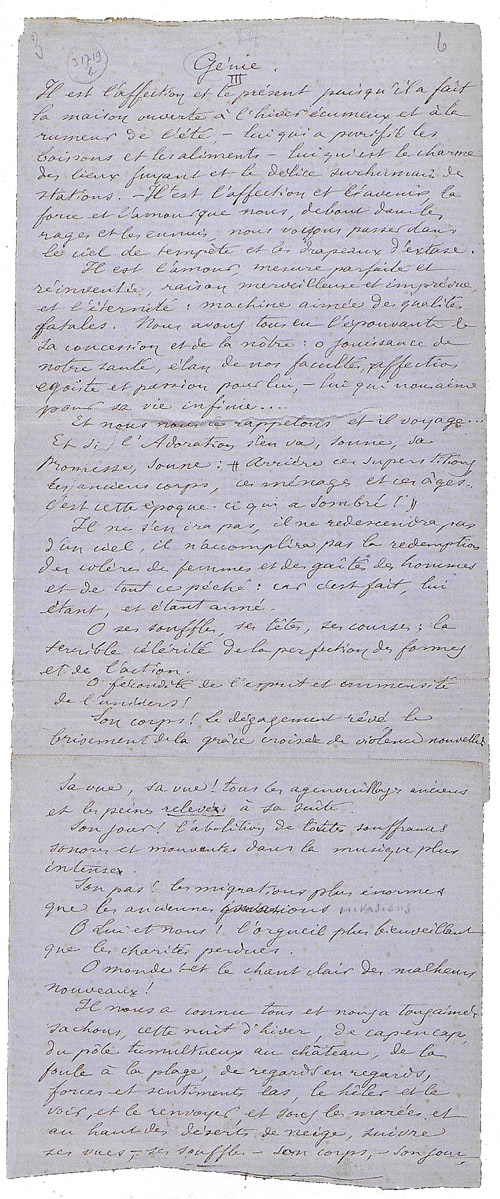 3
6
31719
Génie.
III
Il est l'affection et le présent puisqu'il a fait
la maison ouverte à l'hiver écumeux et à la
rumeur de l'été, – lui qui a purifié les
boissons et les aliments – lui qui est le charme
des lieux fuyant et le délice surhumain de
stations. – Il est l'affection et l'avenir, la
force et l'amour que nous, debout dans les
rages et les ennuis, nous voyons passer dans
le ciel de tempête et les drapeaux d'extase.
Il est l'amour, mesure parfaite et
réinventée, raison merveilleuse et imprévue
et l'éternité : machine aimée des qualités
fatales. Nous avons tous eu l'épouvante de
sa concession et de la nôtre : o jouissance de
notre santé, élan de nos facultés, affection
égoïste et passion pour lui, – lui qui nous aime
pour sa vie infinie....
Et nous nous le rappelons et il voyage...
Et si l'Adoration s'en va, sonne, sa
Promesse, sonne : " Arrière ces superstitions,
ces anciens corps, ces ménages et ces âges.
C'est cette époque-ci qui a sombré ! "
Il ne s'en ira pas, il ne redescendra pas
d'un ciel, il n'accomplira pas la rédemption
des colères de femmes et des gaîtés des hommes
et de tout ce péché : car c'est fait, lui
étant, et étant aimé.
O ses souffles, ses têtes, ses courses ; la
terrible célérité de la perfection des formes
et de l'action.
O fécondité de l'esprit et immensité
de l'univers !
Son corps ! Le dégagement rêvé le
brisement de la grâce croisée de violence nouvelle !
Sa vue, sa vue ! tous les agenouillages anciens
et les peines relevés à sa suite.
Son jour ! l'abolition de toutes souffrances
sonores et mouvantes dans la musique plus
intense.
Son pas ! les migrations plus énormes
que les anciennes invasions
O Lui et nous ! l'orgueil plus bienveillant
que les charités perdues.
O monde ! et le chant clair des malheurs
nouveaux !
Il nous a connu tous et nous a tous aimé,
sachons, cette nuit d'hiver, de cap en cap,
du pôle tumultueux au château, de la
foule à la plage, de regards en regards,
forces et sentiments las, le héler et le
voir, et le renvoyer et sous les marées et
au haut des déserts de neige, suivre
ses vues, – ses souffles – son corps, – son jour,